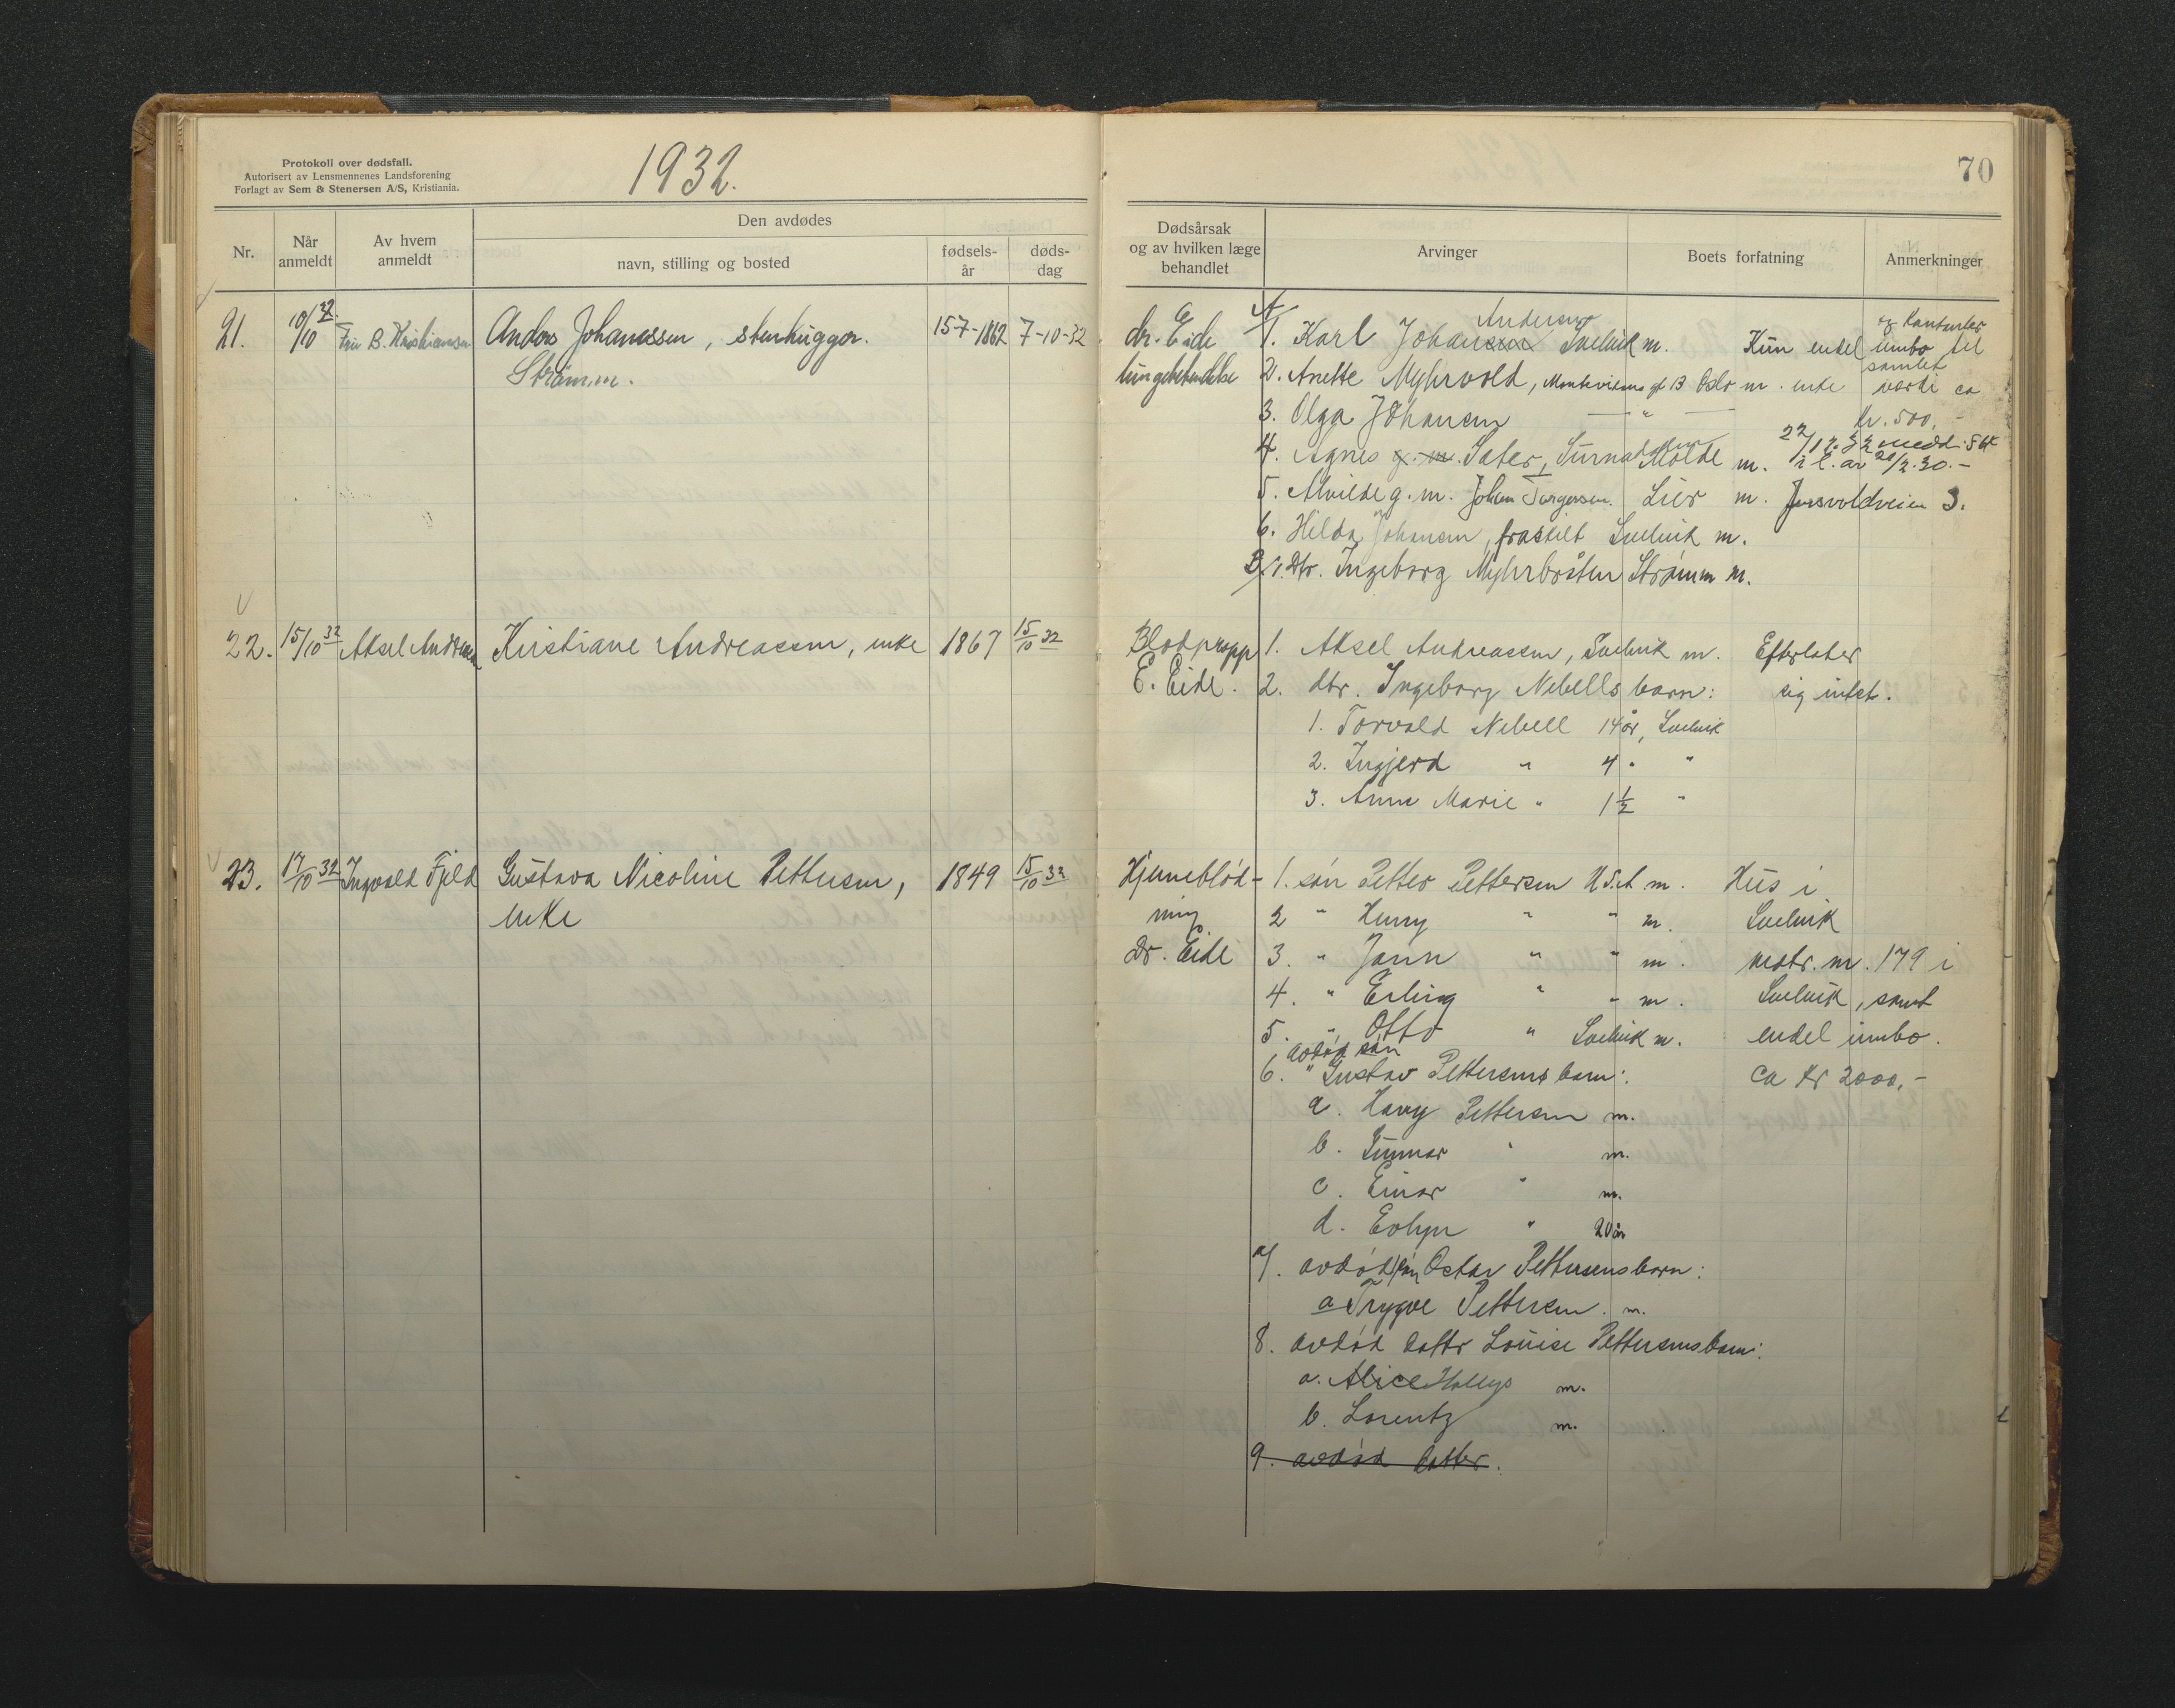 Protokoll over dødsfall.
Autorisert av Lensmennenes Landsforening
Forlagt av Sem & Stenersen A/S, Kristiania.
1932.
Nr.
Når anmeldt
Av hvem anmeldt
Den avdødes
navn, stilling og bosted
fødsels-
år
døds-
dag
21. 10/10 32. Fru B. Kristiansen Anders Johanessen, stenhugger. 15-7-1862 7-10-32
Strømm.
22. 15/10 32 Aksel Andreasen Kristiane Andreassen, enke 1867 15/10 32
23. 17/10 32 Ingvald Fjeld Gustava Nicoline Pettersen, 1849 15/10 32
enke
70
Dødsårsak
og av hvilken læge
behandlet
Arvinger
Boets forfatning
Anmerkninger
dr. Eide
lungebetendelse
A/
Andersen
1. Karl Johansen Svelvik m.
2. Anette Myhrvold, gt 13 Oslo m. enke
3. Olga Johansen — " —
4. Agnes g. m. Sæter, Surnadalen Molde m.
5. Alvilde g. m. Johan Torgersen. Lier m.
6. Hilda Johansen, fraskilt Svelvik m.
B/1. Dtr. Ingeborg Myhrbråten Strømm m.
og kontanter
Kun endel innbo til
samlet
verdi ca
kr. 500,-
22/12.32 medd.
20/2.30.-
3.
Blodpropp
E. Eide.
1. Aksel Andreassen, Svelvik m.
2. dtr. Ingeborg Nebells barn:
1. Torvald Nebell 14 år, Svelvik
2. Ingjerd " 4 " "
3. Anna Marie " 1½ "
Efterlater
sig intet.
Hjerneblød-
ning
Dr. Eide
1. søn Petter Pettersen U.S.A m.
2 " Henry " " m.
3. " Jonn " " m.
4. " Erling " " m.
5. " Otto " Svelvik m.
avdød søn
6. " Gustav Pettersens barn:
a. Harry Pettersen m.
b. Gunnar " m.
c. Einar " m.
d. Evelyn " 20 år
7. avdød søn Oskar Pettersens barn:
a Trygve Pettersen. m.
8. avdød datter Louise Pettersens barn:
a. Alice m.
b. Lorentz m.
9. avdød datter.
Hus i
Svelvik
matr. nr. 179 i
Svelvik, samt
endel innbo.
ca kr 2000,-